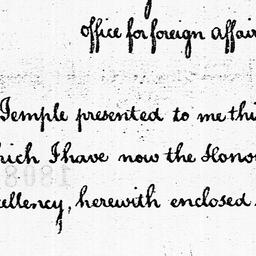 office for foreign affair
Temple presented to me thi
hich I have now the Hono
ellency, herewith enclosed